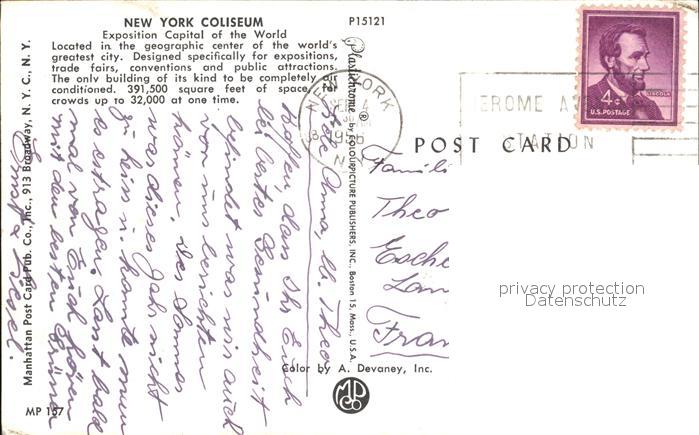 NEW YORK COLISEUM
Exposition Capital of the World
Located in the geographic center of the world's
greatest city. Designed specifically for expositions,
trade fairs, conventions and public attractions.
The only building of its kind to be completely air
conditioned. 391,500 square feet of space, for
crowds up to 32,000 at one time.
P15121
Manhattan Post Card Pub. Co., Inc., 913 Broadway, N. Y. C., N. Y.
MP 157
Plastichrome ® by COLOURPICTURE PUBLISHERS, INC., Boston 15, Mass., U.S.A.
NEW YORK
SEP 4
N.
JEROME AVE
STATION
LINCOLN
4¢
U.S. POSTAGE
POST CARD
Oma, u. Theo
hoffen, dass Ihr Euch
bei bester Gesundheit
befindet was wir auch
von uns berichten
können. Der Sommer
war dieses Jahr nicht
zu heiss u. konnte man
es ertragen. Lasst bald
mal von Euch hören
mit den besten Grüssen
Famili
Theo
Esche
Fran
privacy protection
Datenschutz
Color by A. Devaney, Inc.
MP
CO